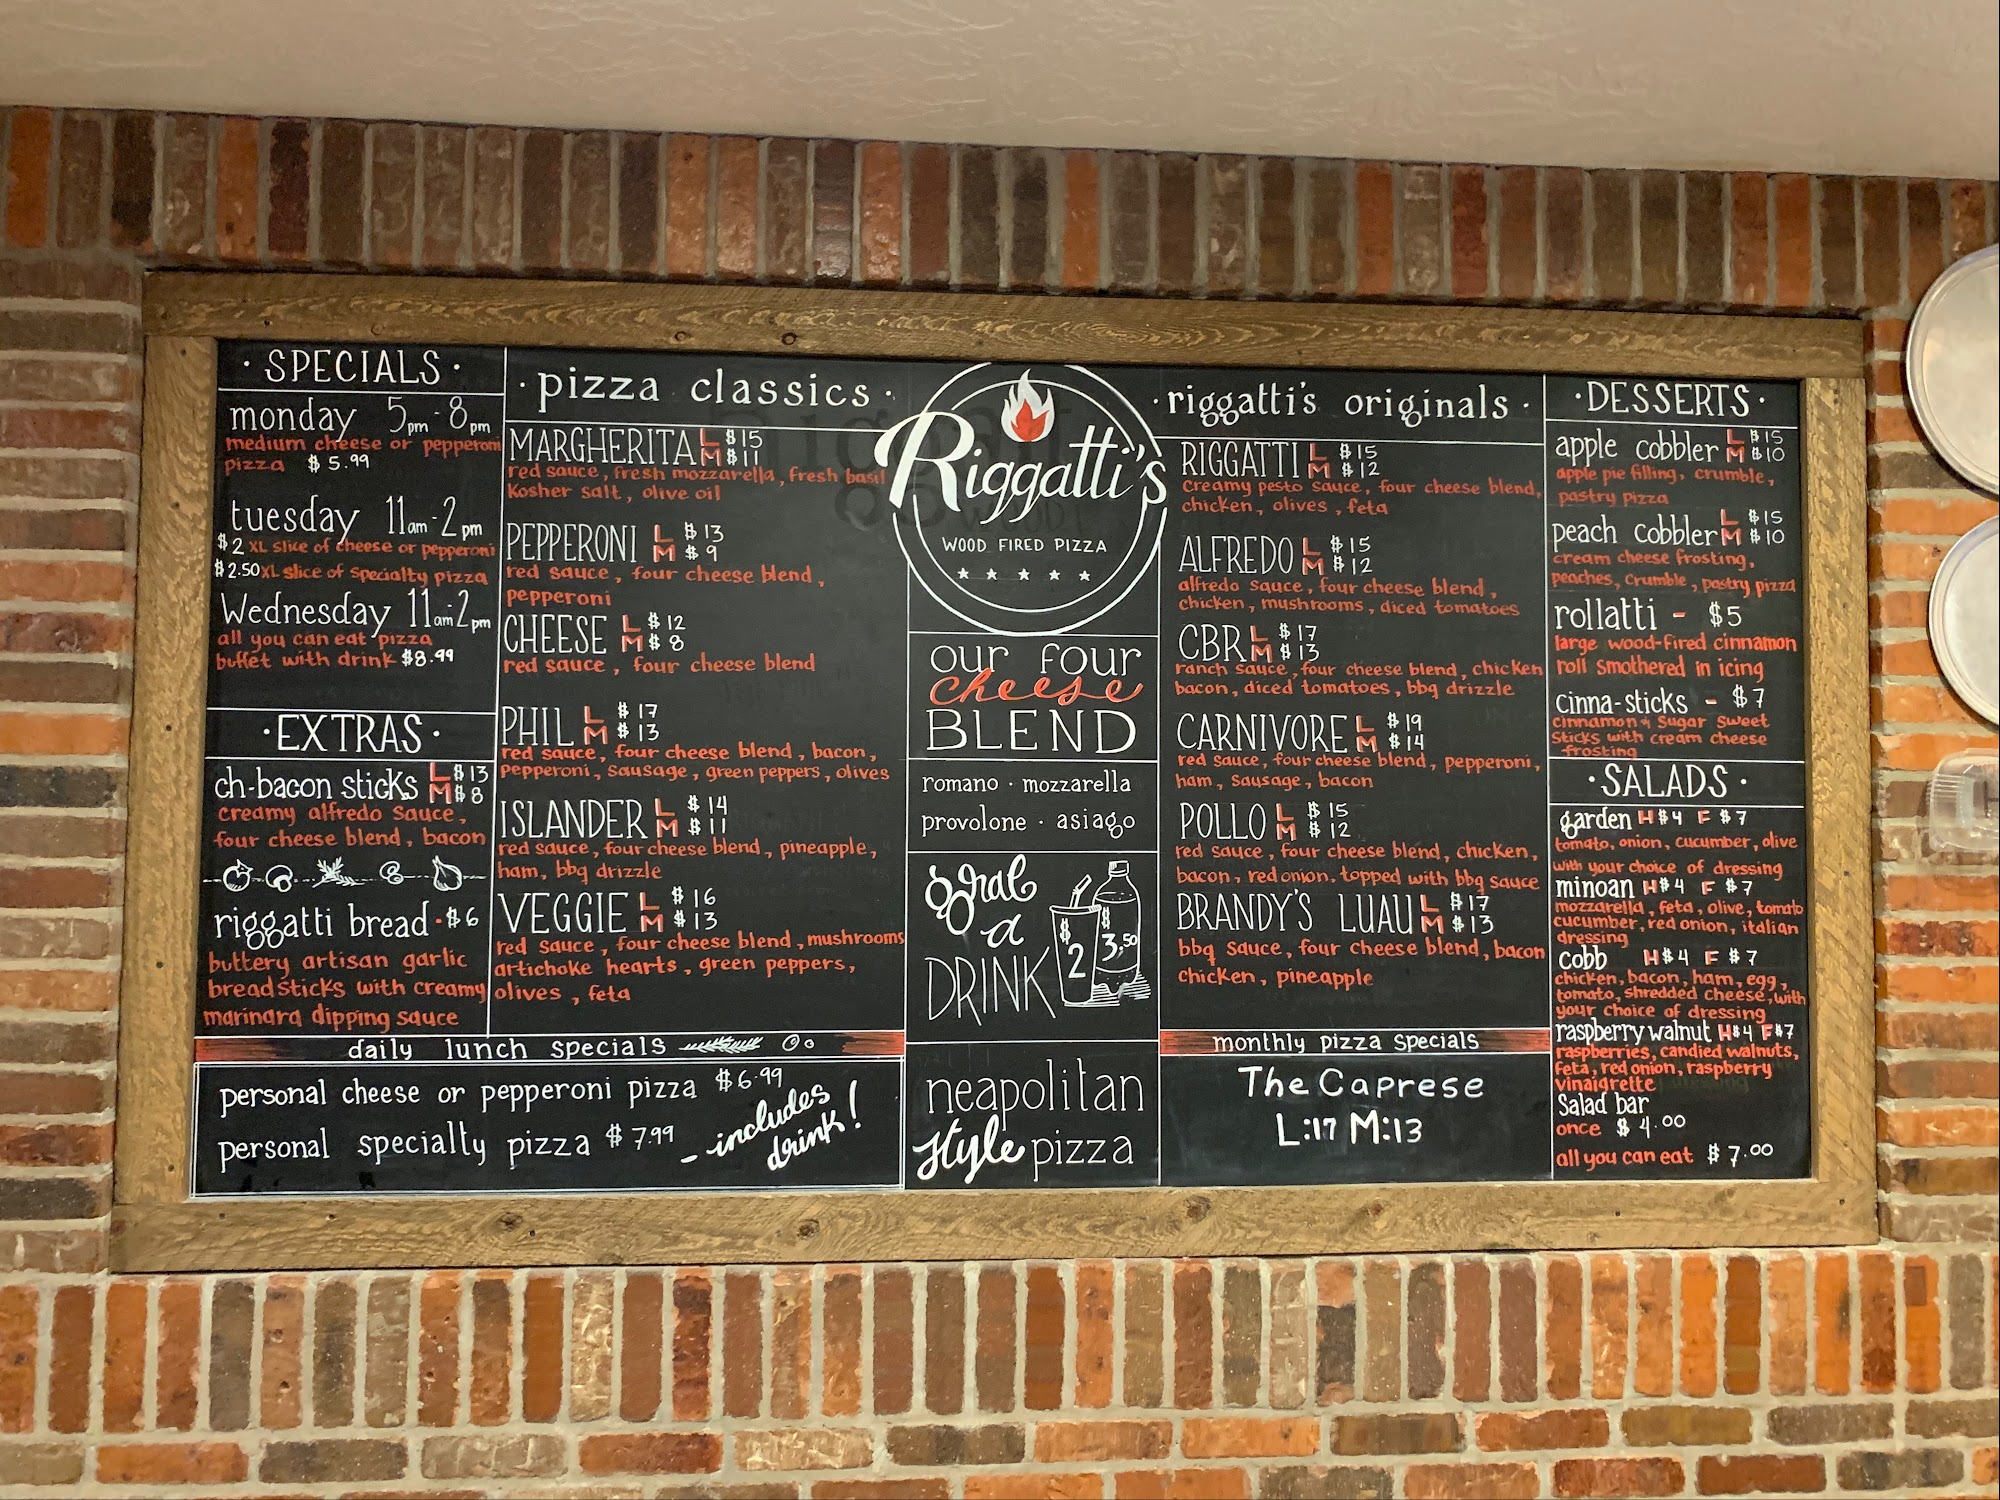 · SPECIALS ·
monday 5pm - 8pm
medium cheese or pepperoni
pizza $5.99
tuesday 11am - 2pm
$2 XL slice of cheese or pepperoni
$2.50 XL slice of specialty pizza
Wednesday 11am-2pm
all you can eat pizza
buffet with drink $8.99
· EXTRAS ·
ch-bacon sticks L $13
M $8
creamy alfredo sauce,
four cheese blend, bacon
riggatti bread · $6
buttery artisan garlic
breadsticks with creamy
marinara dipping sauce
· pizza classics ·
MARGHERITA L $15
M $11
red sauce, fresh mozzarella, fresh basil
Kosher salt, olive oil
PEPPERONI L $13
M $9
red sauce, four cheese blend,
pepperoni
CHEESE L $12
M $8
red sauce, four cheese blend
PHIL L $17
M $13
red sauce, four cheese blend, bacon,
pepperoni, sausage, green peppers, olives
ISLANDER L $14
M $11
red sauce, four cheese blend, pineapple,
ham, bbq drizzle
VEGGIE L $16
M $13
red sauce, four cheese blend, mushrooms
artichoke hearts, green peppers,
olives, feta
daily lunch specials
personal cheese or pepperoni pizza $6.99
personal specialty pizza $7.99
- includes
drink!
Riggatti's
WOOD FIRED PIZZA
our four
cheese
BLEND
romano · mozzarella
provolone · asiago
grab
a
DRINK
$2
$3.50
neapolitan
style pizza
· riggatti's originals ·
RIGGATTI L $15
M $12
Creamy pesto sauce, four cheese blend,
chicken, olives, feta
ALFREDO L $15
M $12
alfredo sauce, four cheese blend,
chicken, mushrooms, diced tomatoes
CBR L $17
M $13
ranch sauce, four cheese blend, chicken
bacon, diced tomatoes, bbq drizzle
CARNIVORE L $19
M $14
red sauce, four cheese blend, pepperoni,
ham, sausage, bacon
POLLO L $15
M $12
red sauce, four cheese blend, chicken,
bacon, red onion, topped with bbq sauce
BRANDY'S LUAU L $17
M $13
bbq sauce, four cheese blend, bacon
chicken, pineapple
monthly pizza specials
The Caprese
L:17 M:13
· DESSERTS ·
apple cobbler L $15
M $10
apple pie filling, crumble,
pastry pizza
peach cobbler L $15
M $10
cream cheese frosting,
peaches, crumble, pastry pizza
rollatti - $5
large wood-fired cinnamon
roll smothered in icing
cinna-sticks - $7
cinnamon & sugar sweet
sticks with cream cheese
frosting
· SALADS ·
garden H $4 F $7
tomato, onion, cucumber, olive
with your choice of dressing
minoan H $4 F $7
mozzarella, feta, olive, tomato
cucumber, red onion, italian
dressing
cobb H $4 F $7
chicken, bacon, ham, egg,
tomato, shredded cheese, with
your choice of dressing
raspberry walnut H $4 F $7
raspberries, candied walnuts,
feta, red onion, raspberry
vinaigrette
Salad bar
once $4.00
all you can eat $7.00